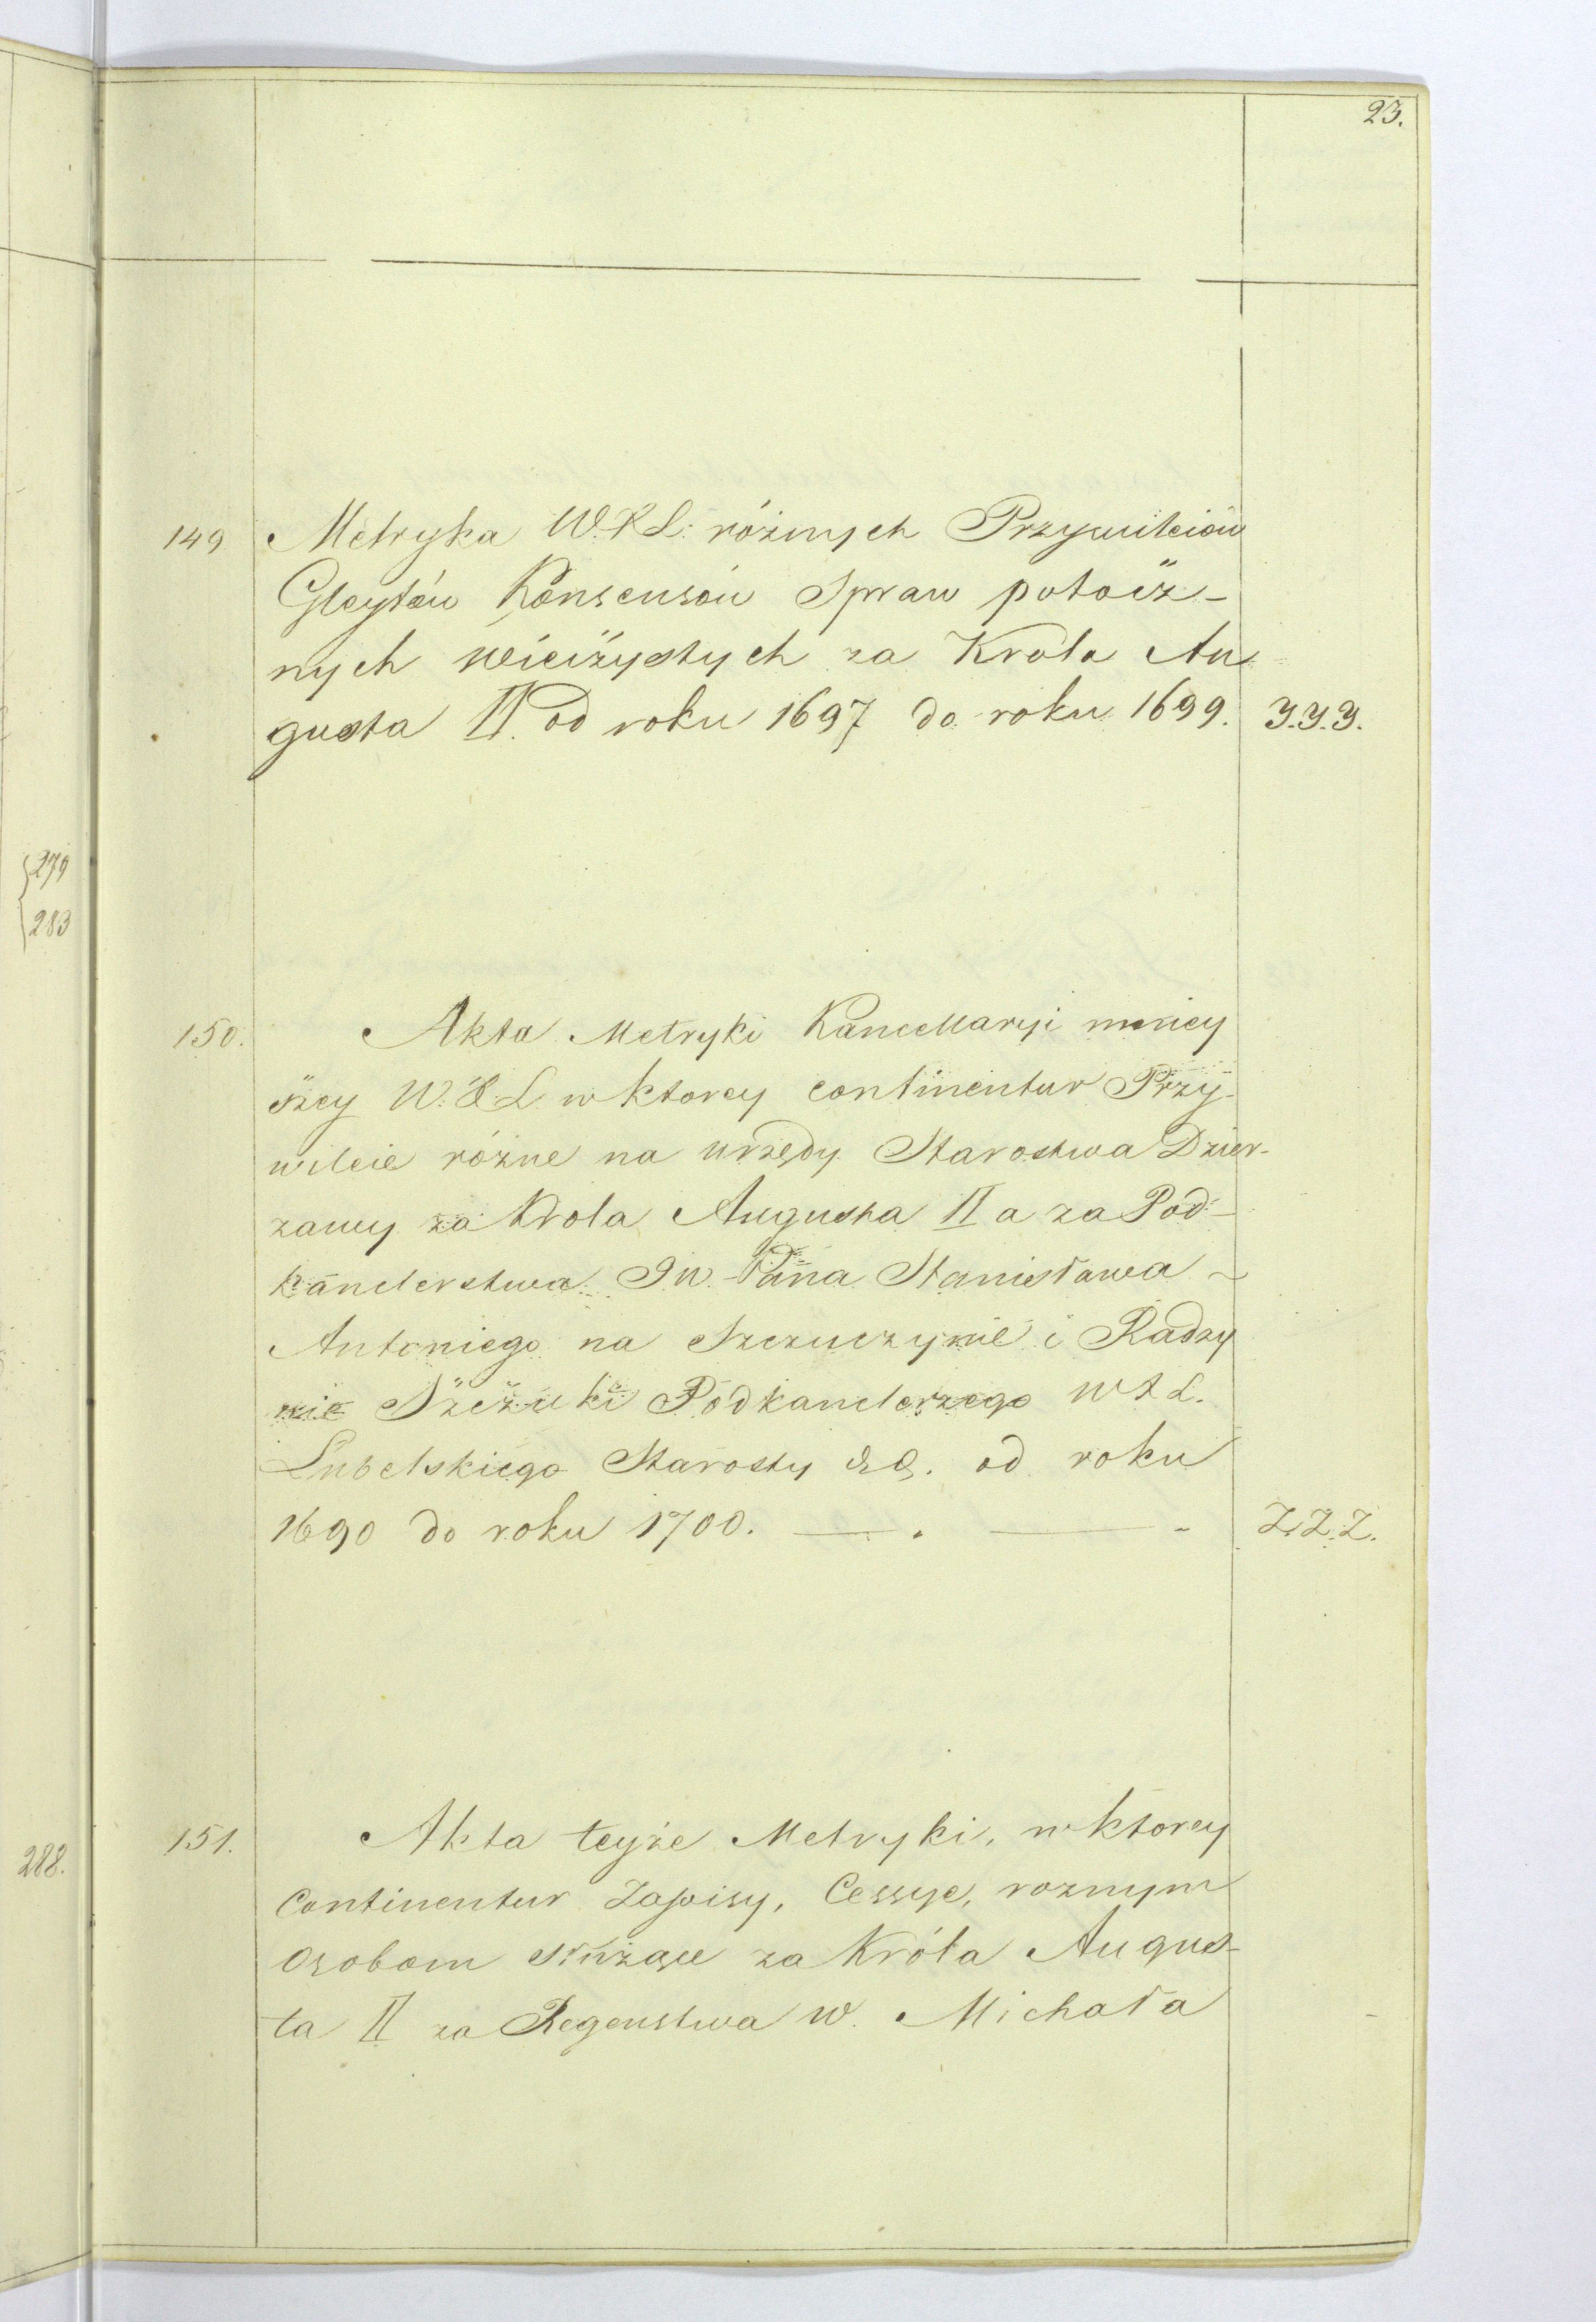 23.
149 Metryka W.X.L: różnych Przywileiów
Gleytów Konsensów Spraw potocz-
nych wieczystych za Krola Au
gusta II. od roku 1697 do roku 1699. Y.Y.Y.
279
283
150. Akta Metryki Kancellaryi mniey
szey W.X.L w ktorey continentur Przy-
wileie różne na urzędy Starostwa Dzier-
zawy za Krola Augusta II a za Pod-
kanclerstwa JW Pana Stanisława
Antoniego na Szczuczynie i Radzy
nie Szczuki Podkanclerzego WXL.
Lubelskiego Starosty &c. od roku
1690 do roku 1700. Z.Z.Z.
288.
151. Akta teyże Metryki, w ktorey
Continentur Zapisy, Cessye, roznym
Osobom służące za Króla Augus-
ta II za Regenstwa W. Michała